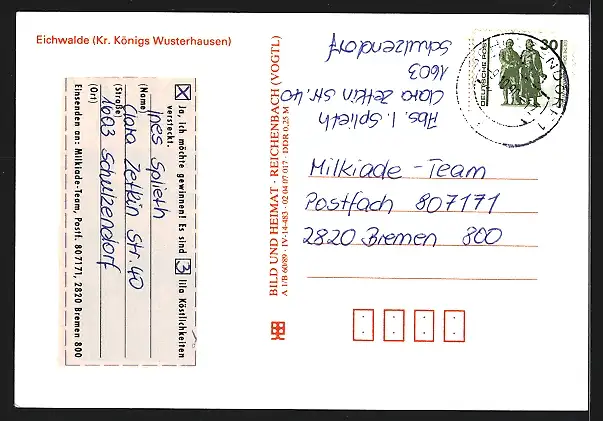 Eichwalde (Kr. Königs Wusterhausen)
Ja, ich möchte gewinnen! Es sind 3 lila Köstlichkeiten
versteckt.
Ines Splieth
(Name)
Clara Zetkin Str. 40
(Straße)
1603 Schulzendorf
(Ort)
Einsenden an: Milkiade-Team, Postf. 807171, 2820 Bremen 800
BILD UND HEIMAT · REICHENBACH (VOGTL)
A 1/B 60/89 · IV-14-483 · 02 04 07 017 · DDR 0,25 M
Abs. I. Splieth
Clara Zetkin Str. 40
1603
Schulzendorf
DEUTSCHE POST
30
Milkiade-Team
Postfach 807171
2820 Bremen 800